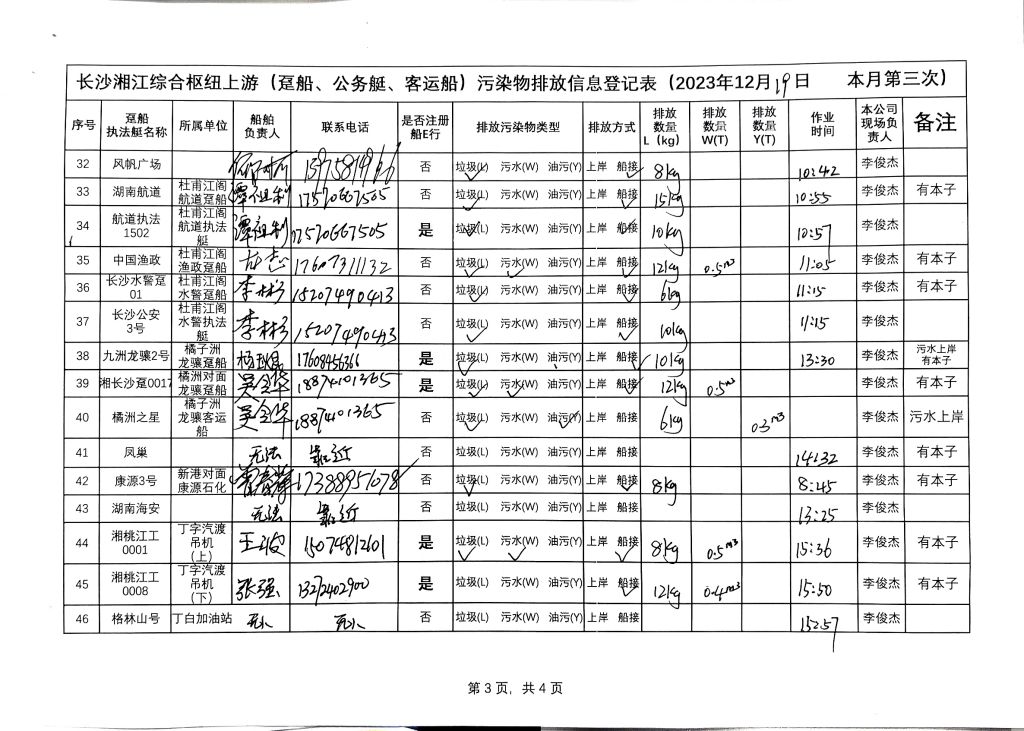 长沙湘江综合枢纽上游（趸船、公务艇、客运船）污染物排放信息登记表（2023年12月19日 本月第三次）
序号 趸船执法艇名称 所属单位 船舶负责人 联系电话 是否注册船E行 排放污染物类型 排放方式 排放数量L（kg） 排放数量W(T) 排放数量Y(T) 作业时间 本公司现场负责人 备注
32 风帆广场 否 垃圾(L) 污水(W) 油污(Y) 上岸 船接 8kg 10:42 李俊杰
33 湖南航道 杜甫江阁航道趸船 谭祖利 17520667505 否 垃圾(L) 污水(W) 油污(Y) 上岸 船接 15kg 10:55 李俊杰 有本子
34 航道执法1502 杜甫江阁航道执法艇 谭祖利 17520667505 是 垃圾(L) 污水(W) 油污(Y) 上岸 船接 10kg 10:57 李俊杰
35 中国渔政 杜甫江阁渔政趸船 17607311132 否 垃圾(L) 污水(W) 油污(Y) 上岸 船接 12kg 0.5m3 11:05 李俊杰 有本子
36 长沙水警趸01 杜甫江阁水警趸船 李彬 15207490413 否 垃圾(L) 污水(W) 油污(Y) 上岸 船接 6kg 11:15 李俊杰 有本子
37 长沙公安3号 杜甫江阁水警执法艇 李彬 15207490413 否 垃圾(L) 污水(W) 油污(Y) 上岸 船接 10kg 11:15 李俊杰
38 九洲龙骧2号 橘子洲龙骧趸船 17608456366 是 垃圾(L) 污水(W) 油污(Y) 上岸 船接 10kg 13:30 李俊杰 污水上岸有本子
39 湘长沙趸0017 橘洲对面龙骧趸船 吴金华 18874101365 是 垃圾(L) 污水(W) 油污(Y) 上岸 船接 12kg 0.5m3 李俊杰 有本子
40 橘洲之星 橘子洲龙骧客运船 吴金华 18874101365 否 垃圾(L) 污水(W) 油污(Y) 上岸 船接 6kg 0.3m3 李俊杰 污水上岸
41 凤巢 无法 靠近 否 垃圾(L) 污水(W) 油污(Y) 上岸 船接 14:32 李俊杰 有本子
42 康源3号 新港对面康源石化 17388957078 否 垃圾(L) 污水(W) 油污(Y) 上岸 船接 8kg 8:45 李俊杰 有本子
43 湖南海安 无法 靠近 否 垃圾(L) 污水(W) 油污(Y) 上岸 船接 13:25 李俊杰
44 湘桃江工0001 丁字汽渡吊机（上） 15074812601 是 垃圾(L) 污水(W) 油污(Y) 上岸 船接 8kg 0.5m3 15:36 李俊杰 有本子
45 湘桃江工0008 丁字汽渡吊机（下） 张强 13272402900 是 垃圾(L) 污水(W) 油污(Y) 上岸 船接 12kg 0.4m3 15:50 李俊杰 有本子
46 格林山号 丁白加油站 无人 无人 否 垃圾(L) 污水(W) 油污(Y) 上岸 船接 15:57 李俊杰
第 3 页，共 4 页